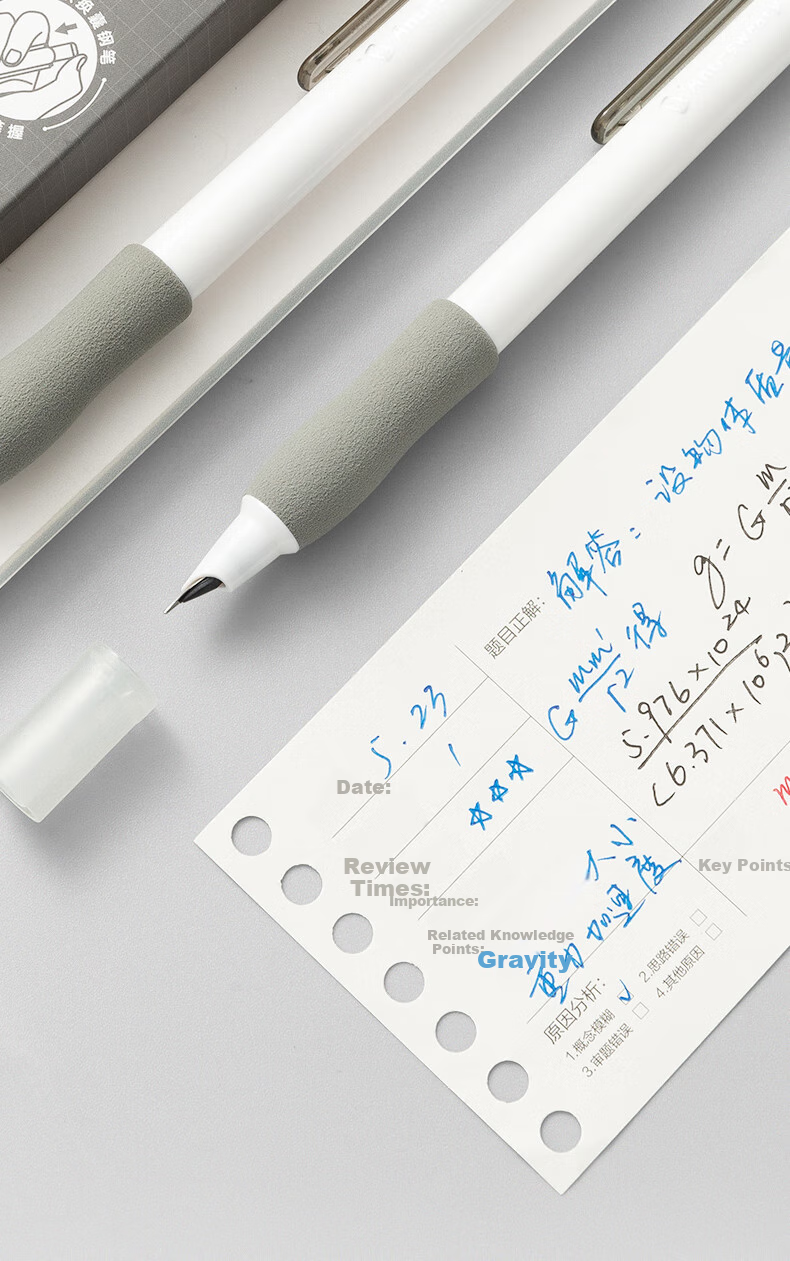 换囊钢笔
握
题目正解:
解答: 设物体质量
G mm' / r2 得
g = G m
5.976×10 24
(6.371×10 6
5.23
Date:
1
Review
Times:
☆☆☆
Importance:
Related Knowledge
Points:
Gravity
重力加速度
大小
Key Points
原因分析:
1.概念模糊 ✓
2.思路错误
3.审题错误
4.其他原因